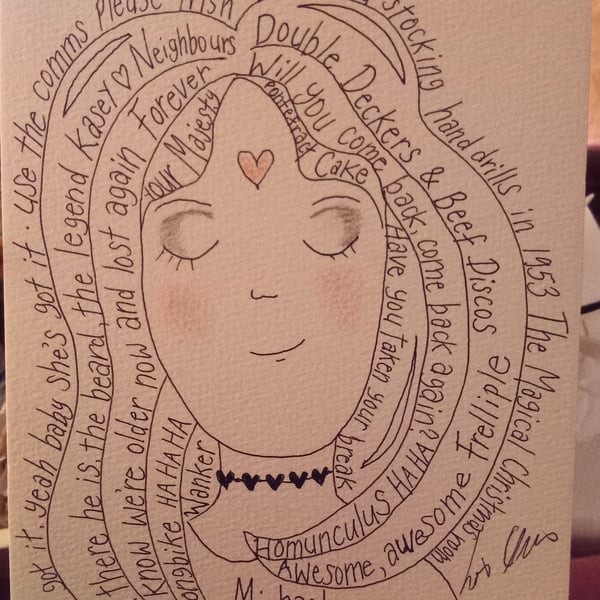 got it. yeah baby she's got it. use the comms please Irish
there he is. the beard, the legend Kasey ♡ Neighbours
know we're older now and lost again Forever
HAHAHA
Your Majesty
Wanker
Pontefract Cake
Have you taken your break
Will you come back, come back again? HAHAHA
Homunculus
Double Deckers & Beef Discos Frelliple
Awesome, awesome
stocking hand drills in 1953 The Magical Christmas room